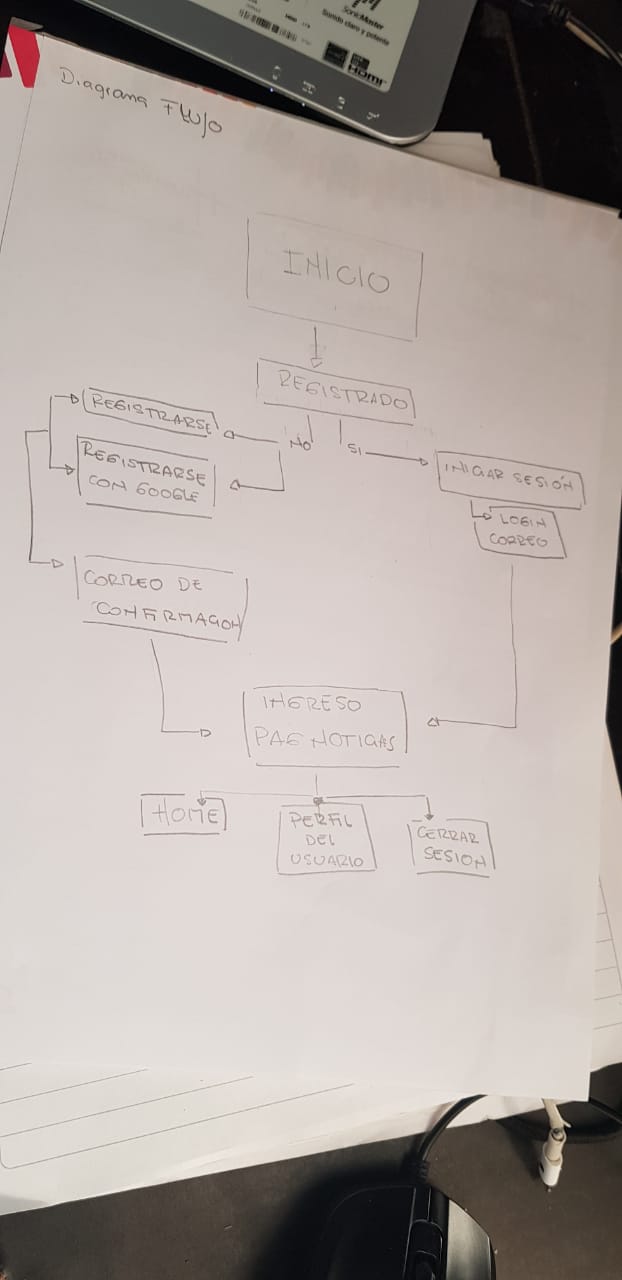 SonicMaster
Sonido claro y potente
HDMI
Diagrama Flujo
INICIO
REGISTRADO
NO
SI
REGISTRARSE
REGISTRARSE
CON GOOGLE
INICIAR SESIÓN
LOGIN
CORREO
CORREO DE
CONFIRMACION
INGRESO
PAG NOTICIAS
HOME
PERFIL
DEL
USUARIO
CERRAR
SESION